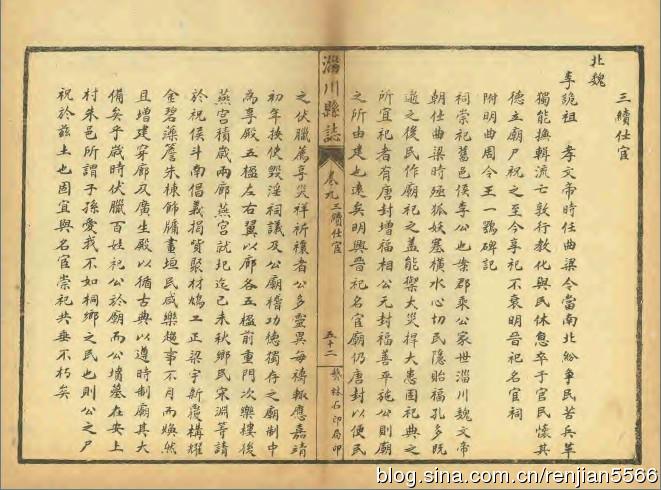 三續仕宦
北魏
李詭祖 孝文帝時任曲梁令當南北紛爭民苦兵革
獨能撫輯流亡敦行教化與民休息卒于官民懷其
德立廟尸祝之至今享祀不衰明晉祀名宦祠
附明曲周令王一鶚碑記
祠崇祀舊邑侯李公也案郡乘公家世淄川魏文帝
朝仕曲梁時殛狐妖塞橫水心切民隱貽福孔多既
逝之後民作廟祀之蓋能禦大災捍大患固祀典之
所宜祀者有唐封增福相公元封福善平施公則廟
之所由建也遠矣明興晉祀名宦廟仍唐封以便民
淄川縣誌
卷九 三續仕宦
五十二
藝林石印局印
之伏臘薦享災祥祈禳者公多靈異每禱輒應嘉靖
初年按使毀淫祠議及公廟稽功德獨存之廟制中
為享殿五楹左右翼以廊各五楹前重門次樂樓後
燕宮積歲兩廊燕宮就圮迄己未秋鄉民宋淵等請
於祝侯斗南倡義捐貲聚材鳩工正梁宇新覆構耀
金碧藻簷朱棟飾牖畫垣民咸樂趨事不月而煥然
且增建穿廊及廣生殿以循古典以遵時制廟其大
備矣乎歲時伏臘百姓祀公於廟而公墳墓在安上
村朱邑所謂子孫愛我不如桐鄉之民也則公之尸
祝於茲土也固宜與名宦崇祀共垂不朽矣
blog.sina.com.cn/renjian5566